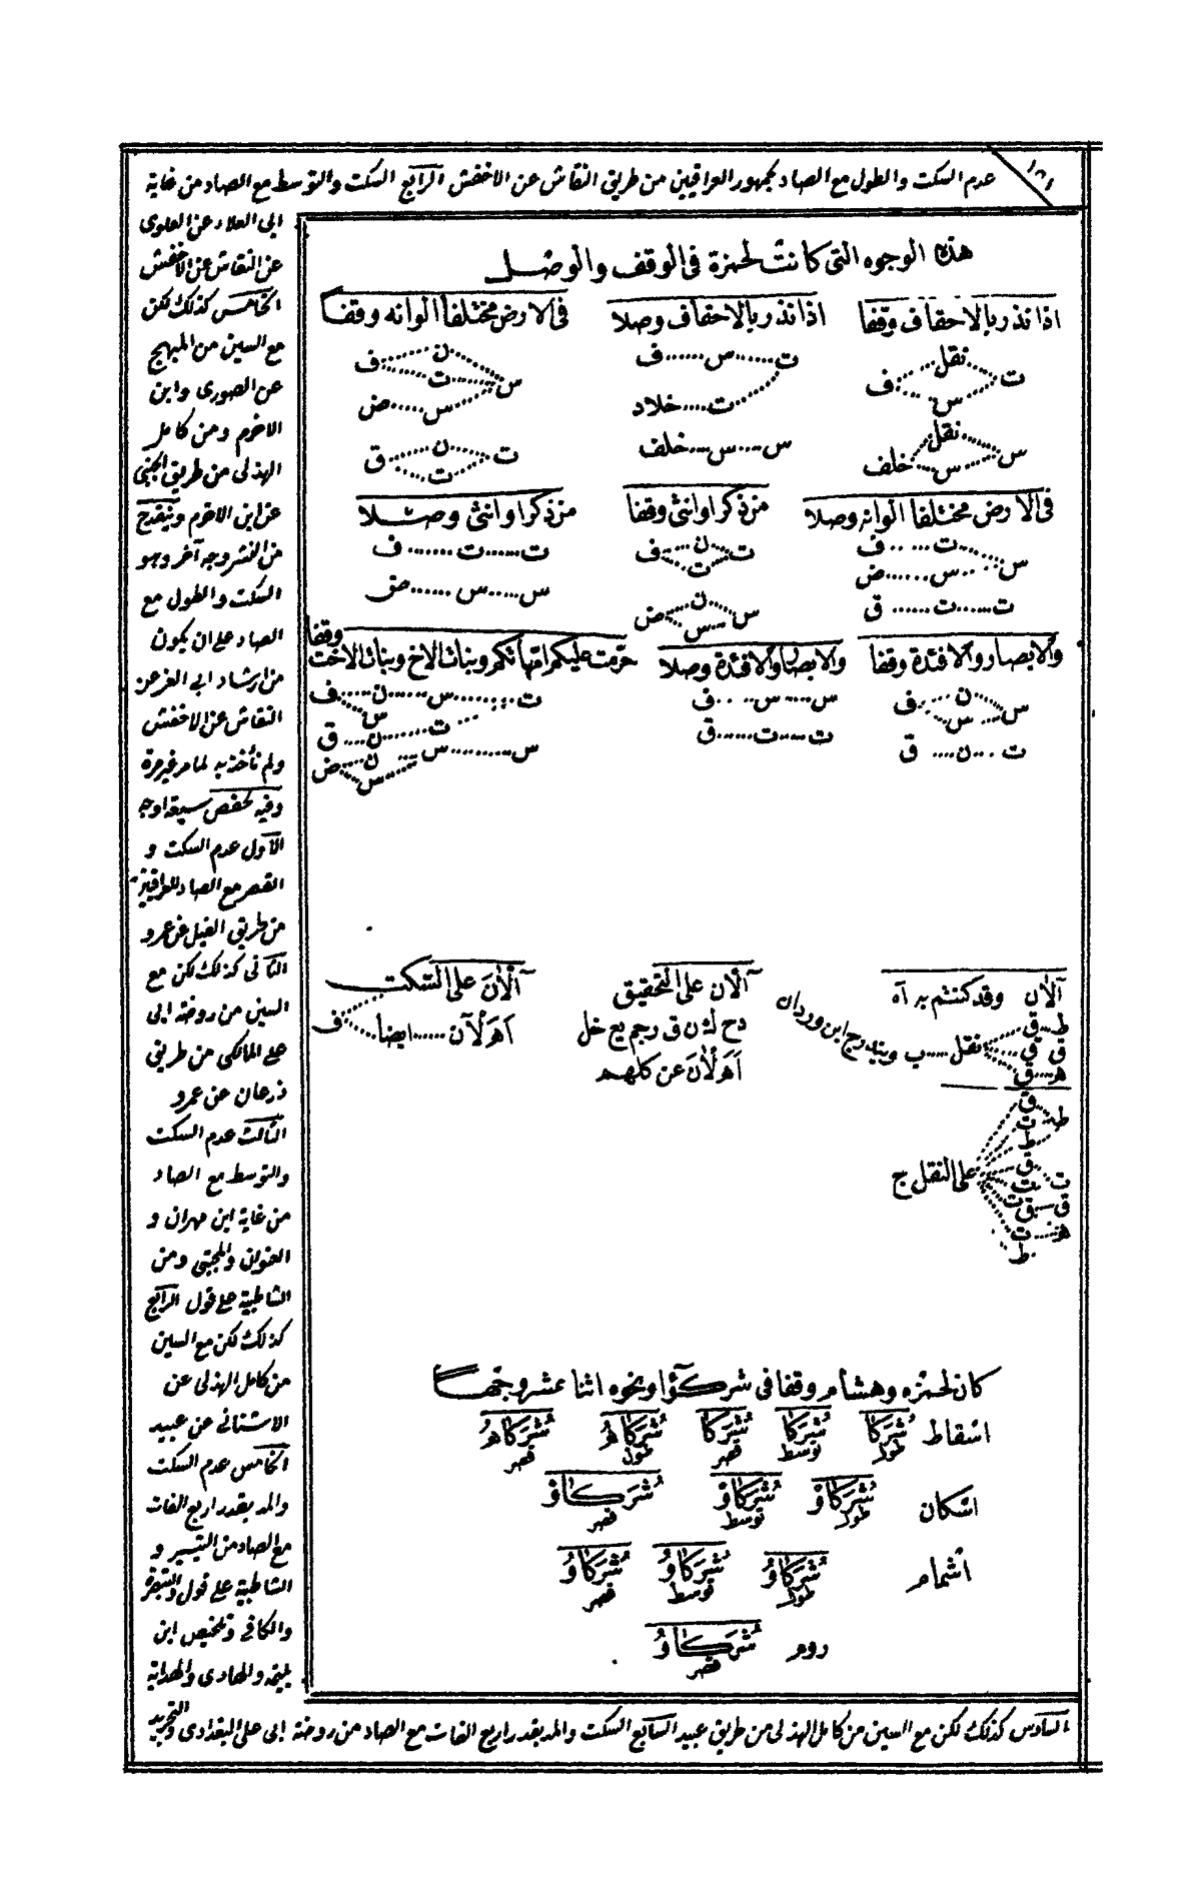 ١٨١
عدم السكت والطول مع الصاد لجمهور العراقيين من طريق النقاش عن الاخفش الرابع السكت والتوسط مع الصاد من غاية
ابى العلاء عن العلوى
عن النقاش عن الاخفش
الخامس كذلك لكن
مع السين من المبهج
عن الصورى وابن
الاخرم ومن كامل
الهذلى من طريق الجبنى
عن ابن الاخرم وينقدح
من النشر وجه آخر وهو
السكت والطول مع
الصاد على ان يكون
من ارشاد ابى العز عن
النقاش عن الاخفش
ولم نأخذ به لما مر غير مرة
وفيه لحفص سبعة اوجه
الاول عدم السكت و
القصر مع الصاد للعراقيين
من طريق الفيل عن عمرو
الثانى كذلك لكن مع
السين من روضة ابى
على المالكى من طريق
ذرعان عن عمرو
الثالث عدم السكت
والتوسط مع الصاد
من غاية ابن مهران و
العنوان والمجتبى ومن
الشاطبية على قول الرابع
كذلك لكن مع السين
من كامل الهذلى عن
الاشنانى عن عبيد
الخامس عدم السكت
والمد بقدر اربع الفات
مع الصاد من التيسير و
الشاطبية على قول والتبصرة
والكافى وتلخيص ابن
بليمة والهادى والهداية
والتجريد
السادس كذلك لكن مع السين من كامل الهذلى من طريق عبيد السابع السكت والمد بقدر اربع الفات مع الصاد من روضة ابى على البغدادى
هذه الوجوه التى كانت لحمزة فى الوقف والوصل
اذا نذر بالاحقاف وقفا
ت نقل س ف
س نقل س خلف
اذا نذر بالاحقاف وصلا
ت س ف
ت خلاد
س س خلف
فى الارض مختلفا الوانه وقفا
س ن ت ف
س ض
ت ن ت ق
فى الارض مختلفا الوانه وصلا
س ت ف
س ض
ت ت ق
من ذكر او انثى وقفا
ت ن ت ف
س ن س ض
من ذكر او انثى وصلا
ت ت ف
س س ض
والابصار والافئدة وقفا
س ن س ف
ت ن ق
والابصار والافئدة وصلا
س س ف
ت ت ق
حرمت عليكم امهاتكم وبنات الاخ وبنات الاخت وقفا
ت س ن ف
س
ت ن ق
س س ن ض
س
آلان وقد كنتم به آه
ط ق
ق ق نقل ب ويندرج ابن وردان
هـ ق
ط ق ت ط
ت ق ت على النقل ج
ق ق ت
هـ ت ط
آلان على التحقيق
دح لذن ق رجم يع خل
آهلان عن كلهم
آلان على السكت
آهلآن ايضا ف
كان لحمزه وهشام وقفا فى شركؤا ونحوه اثنا عشر وجها
اسقاط شركا طول شركا توسط شركا قصر شركاه طول شركاه قصر
اسكان شركاؤ طول شركاؤ توسط شركاؤ قصر
اشمام شركاؤ طول شركاؤ توسط شركاؤ قصر
روم شركاؤ قصر